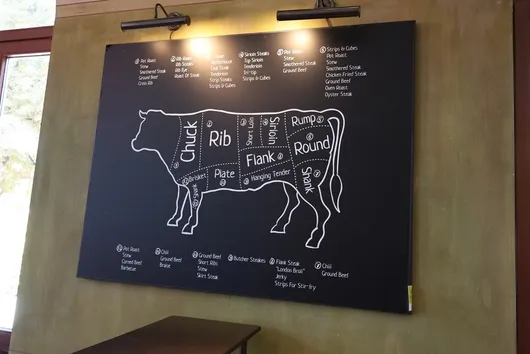 ① Pot Roast
Stew
Smothered Steak
Ground Beef
Cross Rib
② Rib Roast
Rib Steaks
Rib Eye
Roast Of Steak
Porterhouse
Tenderloin
Strip Steaks
Strips & Cubes
④ Sirloin Steaks
Top Sirloin
Tenderloin
Tri-tip
Strips & Cubes
⑤ Pot Roast
Stew
Smothered Steak
Ground Beef
⑥ Strips & Cubes
Pot Roast
Stew
Smothered Steak
Chicken Fried Steak
Ground Beef
Oven Roast
Oyster Steak
Chuck
Rib
Short Loin
Sirloin
Rump
Round
Flank
Hanging Tender
Shank
Brisket
Plate
Shank
Pot Roast
Stew
Corned Beef
Barbecue
Chili
Ground Beef
Braise
Ground Beef
Short Ribs
Stew
Skirt Steak
Butcher Steaks
Flank Steak
"London Broil"
Jerky
Strips For Stir-fry
⑦ Chili
Ground Beef